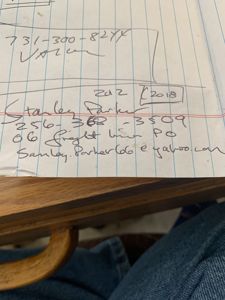 731-300-8244
212 2018
Stanley Parker
256-368-3509
06 freight liner PO
Stanley.Parker66@yahoo.com